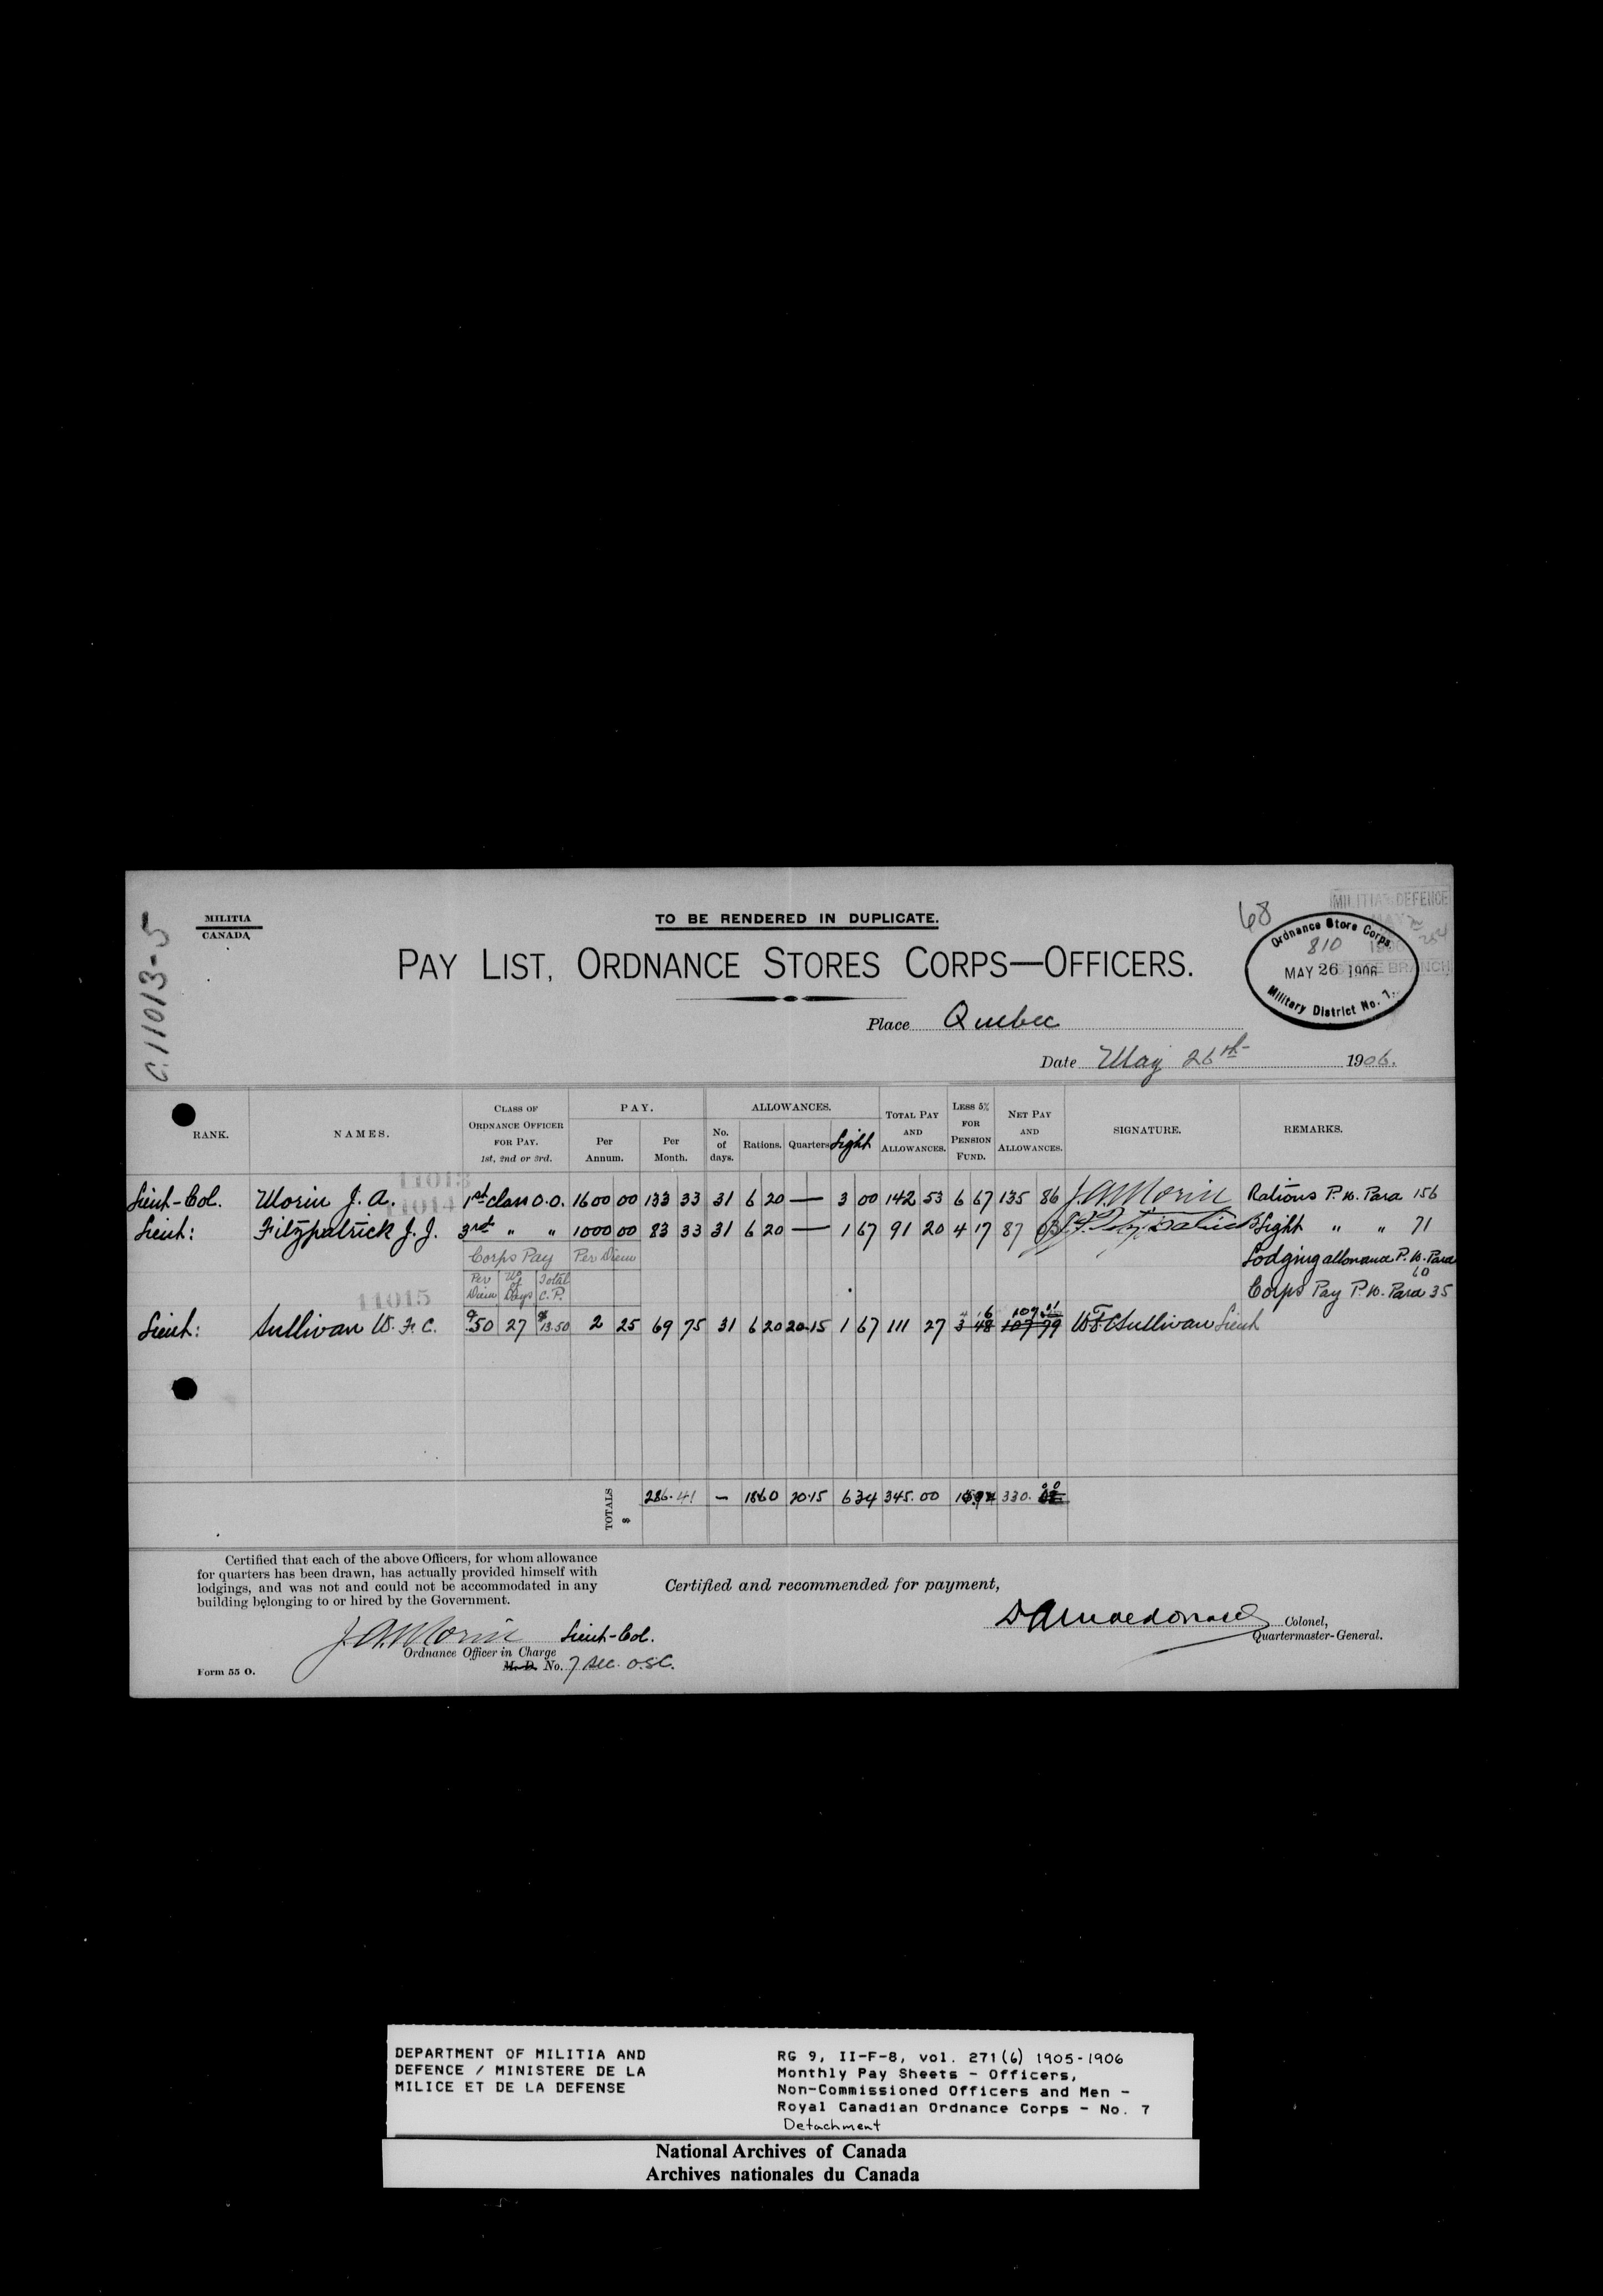 C. 11013-5
MILITIA
CANADA
TO BE RENDERED IN DUPLICATE.
68
MILITIA DEFENCE
MAY
Ordnance Store Corps.
810
MAY 26 1906
Military District No. 7.
BRANCH
PAY LIST, ORDNANCE STORES CORPS—OFFICERS.
Place Quebec
Date May 26th 1906.
RANK. NAMES. CLASS OF ORDNANCE OFFICER FOR PAY. 1st, 2nd or 3rd. PAY. Per Annum. Per Month. ALLOWANCES. No. of days. Rations. Quarters Light TOTAL PAY AND ALLOWANCES. LESS 5% FOR PENSION FUND. NET PAY AND ALLOWANCES. SIGNATURE. REMARKS.
11013
11014
Lieut-Col. Morin J. A. 1st class O.O. 1600 00 133 33 31 6 20 — 3 00 142 53 6 67 135 86 J.A. Morin Rations P. W. Para 156
Lieut: Fitzpatrick J. J. 3rd " " 1000 00 83 33 31 6 20 — 1 67 91 20 4 17 87 03 J.J. Fitzpatrick Light " " 71
Corps Pay Per Diem Lodging allowance P. W. Para 60
Per Diem No of Days Total C. P. Corps Pay P. W. Para 35
11015
4 16 107 11
Lieut: Sullivan W. F. C. .50 27 13.50 2 25 69 75 31 6 20 20.15 1 67 111 27 3 48 107 79 W F C Sullivan Lieut
TOTALS $ 286.41 — 18 60 20.15 6 34 345.00 330. 00
Certified that each of the above Officers, for whom allowance
for quarters has been drawn, has actually provided himself with
lodgings, and was not and could not be accommodated in any
building belonging to or hired by the Government.
Certified and recommended for payment,
J.A. Morin Lieut-Col.
Ordnance Officer in Charge
M. D. No. 7 Sec. O.S.C.
D A Macdonald Colonel,
Quartermaster-General.
Form 55 O.
DEPARTMENT OF MILITIA AND
DEFENCE / MINISTERE DE LA
MILICE ET DE LA DEFENSE
RG 9, II-F-8, vol. 271 (6) 1905-1906
Monthly Pay Sheets - Officers,
Non-Commissioned Officers and Men -
Royal Canadian Ordnance Corps - No. 7
Detachment
National Archives of Canada
Archives nationales du Canada